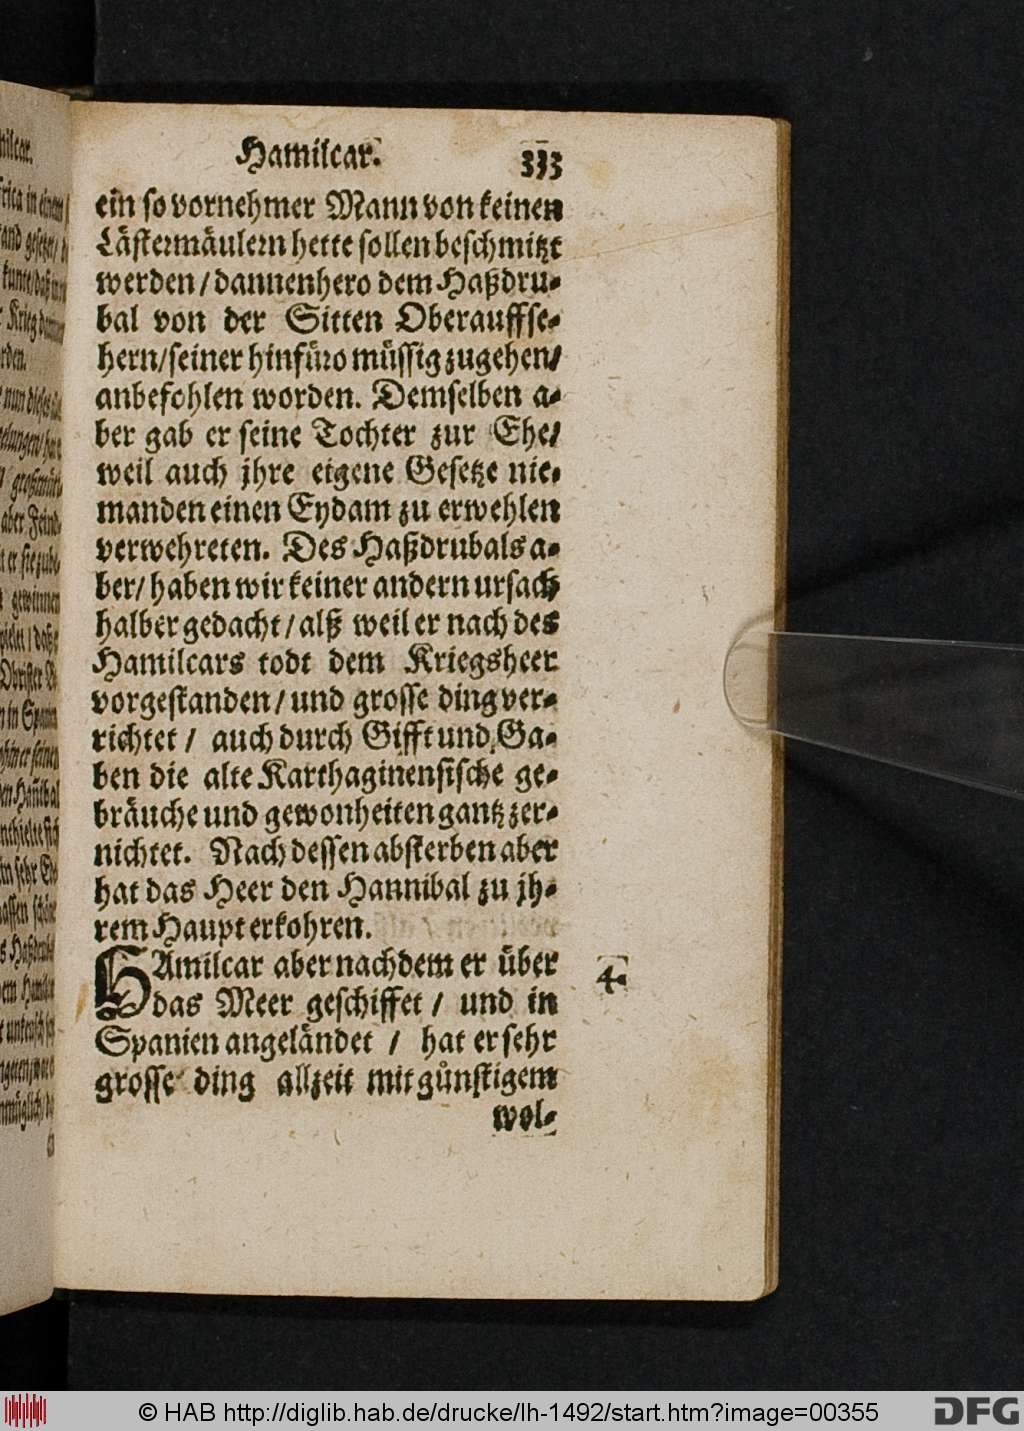 Hamilcar. 333
ein so vornehmer Mann von keinen
Lästermäulern hette sollen beschmitzt
werden / dannenhero dem Haßdru-
bal von der Sitten Oberauffse-
hern/ seiner hinfüro müssig zugehen/
anbefohlen worden. Demselben a-
ber gab er seine Tochter zur Ehe/
weil auch jhre eigene Gesetze nie-
manden einen Eydam zu erwehlen
verwehreten. Des Haßdrubals a-
ber/ haben wir keiner andern ursach
halber gedacht / alß weil er nach des
Hamilcars todt dem Kriegsheer
vorgestanden / und grosse ding ver-
richtet / auch durch Gifft und Ga-
ben die alte Karthaginensische ge-
bräuche und gewonheiten gantz zer-
nichtet. Nach dessen absterben aber
hat das Heer den Hannibal zu jh-
rem Haupt erkohren.
HAmilcar aber nachdem er über 4
das Meer geschiffet / und in
Spanien angeländet / hat er sehr
grosse ding allzeit mit günstigem
wol-
© HAB http://diglib.hab.de/drucke/lh-1492/start.htm?image=00355
DFG